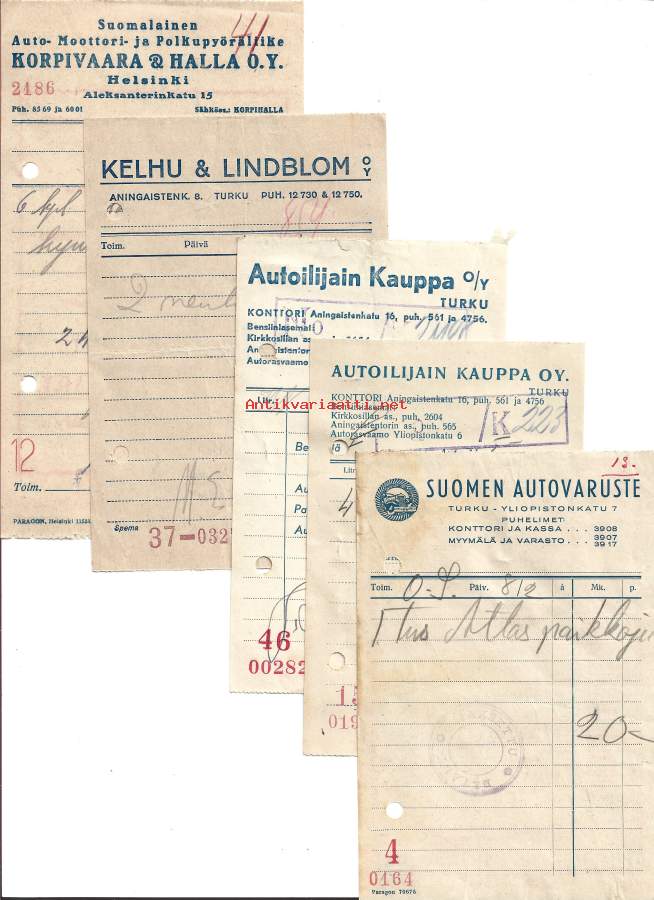 Suomalainen
Auto- Moottori- ja Polkupyöräliike
KORPIVAARA & HALLA O.Y.
Helsinki
2186
41
Aleksanterinkatu 15
Puh. 85 69 ja 60 01 Sähkös.: KORPIHALLA
6 kpl
12
Toim.
PARAGON, Helsinki
KELHU & LINDBLOM OY
ANINGAISTENK. 8. TURKU PUH. 12 730 & 12 750.
Toim. Päivä
2
Spema
37-032
Autoilijain Kauppa O/Y
TURKU
KONTTORI Aningaistenkatu 16, puh. 561 ja 4756.
Bensiiniasemat:
Kirkkosillan as.,
Aningaistentor
Autorasvaamo
Litr.
Be
Au
Pa
Au
46
00282
AUTOILIJAIN KAUPPA OY.
TURKU
KONTTORI Aningaistenkatu 16, puh. 561 ja 4756
Bensiiniasemat
Kirkkosillan as., puh. 2604
Aningaistentorin as., puh. 565
Autorasvaamo Yliopistonkatu 6
K 223
Litr
4
15
019
Antikvariaatti.net
13.
SUOMEN AUTOVARUSTE
TURKU - YLIOPISTONKATU 7
PUHELIMET:
KONTTORI JA KASSA . . . 3908
MYYMÄLÄ JA VARASTO . . . 3907
3917
Toim. O.S. Päiv. 8/2 à Mk. p.
1 tus Atlas paikkoja
20-
4
0164
Paragon 79676